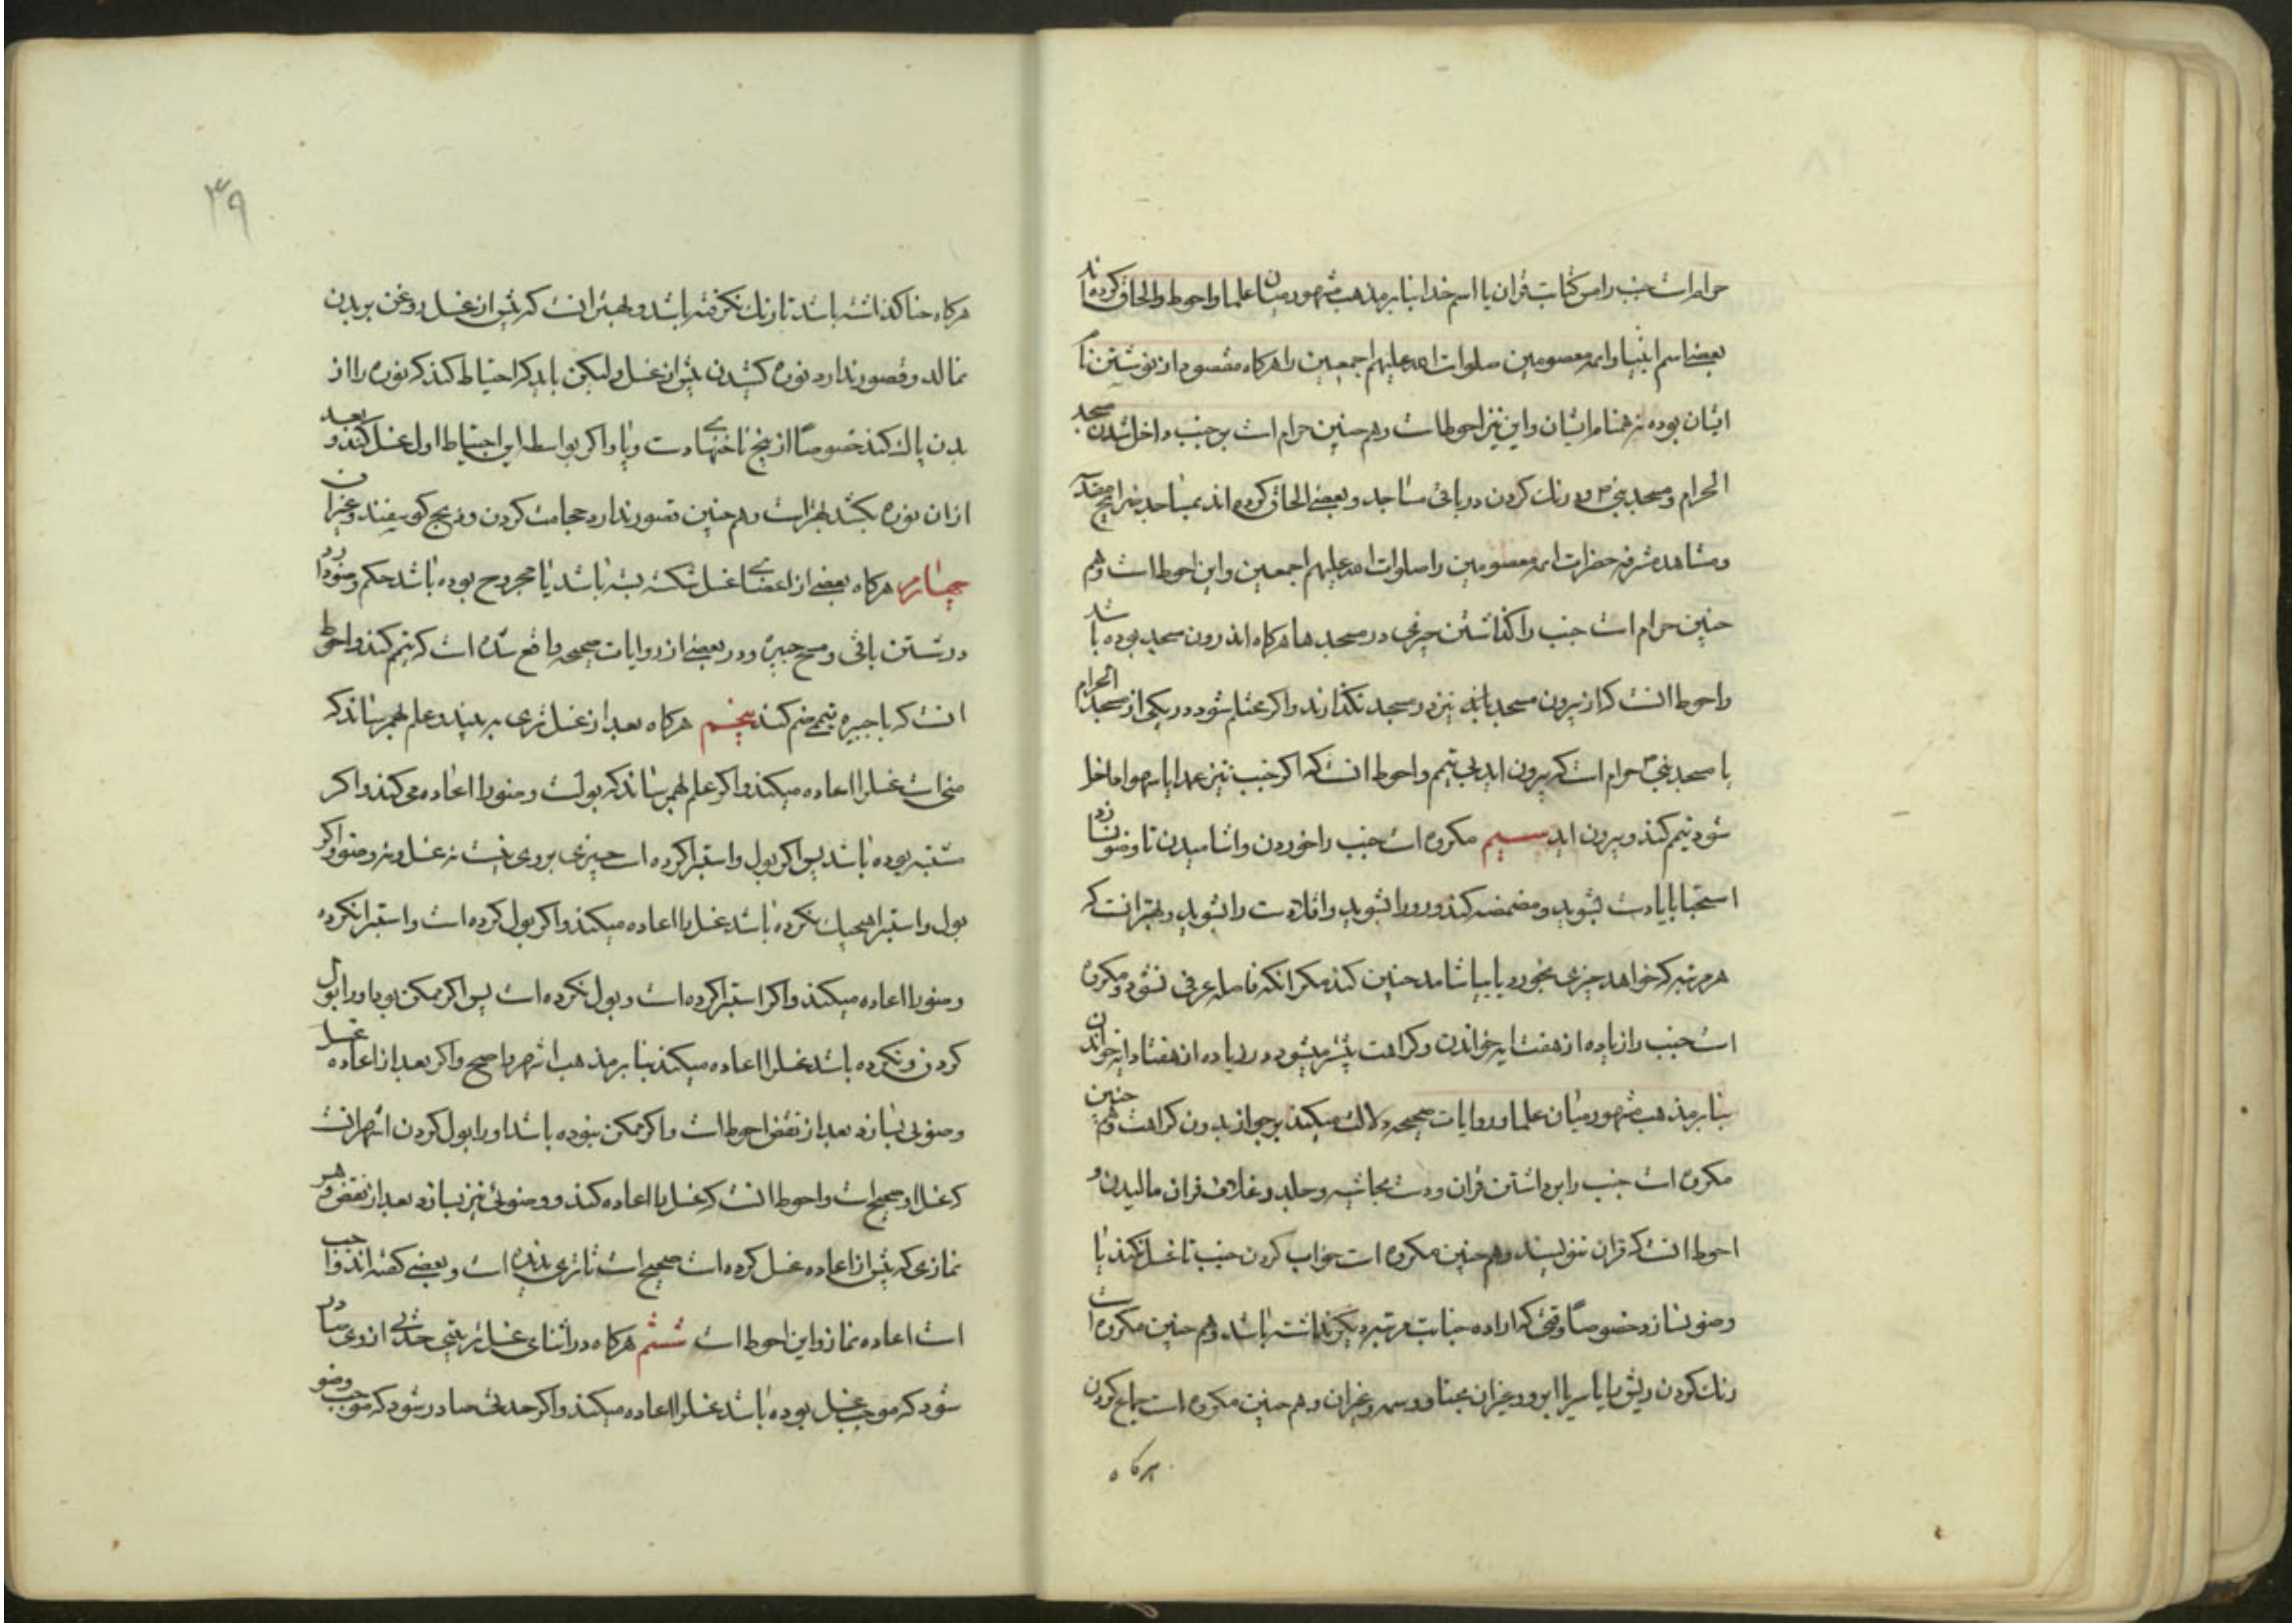 حرام است جنب را مس کتابت قران یا اسم خدا بنا بر مذهب مشهور میان علما و احوط و الحاق کرده‌اند
بعضی اسم انبیا و ائمه معصومین صلوات الله علیهم اجمعین را هرکاه مقصود از نوشتن نام
ایشان بوده نه همنام ایشان و این نیز احوط است و هم چنین حرام است بر جنب داخل شدن مسجد
الحرام و مسجد نبی و درنك کردن در باقی مساجد و بعضی الحاق کرده اند بمساجد ضرایح مقدسه
و مشاهده مشرفه حضرات ائمه معصومین را صلوات الله علیهم اجمعین و این احوط است و هم
چنین حرام است جنب را کذاشتن چیزی در مسجد ها هرکاه اندرون مسجد بوده باشد
و احوط انست که از بیرون مسجد نیز در مسجد نکذارند و اکر محتلم شود در یکی از مسجد الحرام
یا مسجد نبی حرام است که بیرون اید بی تیمم و احوط انست که اکر جنب نیز عمدا یا سهوا داخل
شود تیمم کند و بیرون اید سیم مکروه است جنب را خوردن و اشامیدن تا وضو نسازد
استحبابا یا دست بشوید و مضمضه کند و رو را بشوید و اقلا دست را بشوید و بهتر انست که
هر مرتبه که خواهد چیزی بخورد یا بیاشامد چنین کند مکر انکه فاصله عرفی نشود و مکروه
است جنب را زیاده از هفت ایه خواندن و کراهت بیشتر میشود در زیاده از هفتاد ایه خواندن
بنا بر مذهب مشهور میان علما و روایات صحیحه دلالت میکند بر جواز بدون کراهت و هم چنین
مکروه است جنب را برداشتن قران و دست بحاشیه و جلد و غلاف قران مالیدن و
احوط انست که قران ننویسند و هم چنین مکروه است خواب کردن جنب تا غسل نکند یا
وضو نسازد خصوصا وقتی که اراده جنابت مرتبه دیکر نداشته باشد و هم چنین مکروه است
رنك کردن ریش یا پا یا سر یا ابرو و غیر ان بحنا و وسمه و غیر ان و هم چنین مکروه است جماع کردن
هرکاه
۳۹
هرکاه حنا کذاشته باشد تا رنك نکرفته باشد و بهتر انست که پیش از غسل روغن بر بدن
نمالد و قصور ندارد نوره کشیدن پیش از غسل و لیکن باید که احتیاط کند که نوره را از
بدن پاك کند خصوصا از بیخ ناخنهای دست و پا و اکر بواسطه این احتیاط اول غسل کند و بعد
از ان نوره بکشد بهتر است و هم چنین قصور ندارد حجامت کردن و ذبح کوسفند و غیر ان
چهارم هرکاه بعضی از اعضای غسل شکسته بسته باشد یا مجروح بوده باشد حکم وضو دارد
در شستن باقی و مسح جبیره و در بعضی از روایات صحیحه واقع شده است که تیمم کند و احوط
انست که با جبیره تیمم ضم کند پنجم هرکاه بعد از غسل تری به بیند و علم بهم رساند که
منی است غسل را اعاده میکند و اکر علم بهم رساند که بولست وضو را اعاده می کند و اکر
مشتبه بوده باشد پس اکر بول و استبرا کرده است چیزی بر وی نیست نه غسل و نه وضو و اکر
بول و استبرا هیچیك نکرده باشد غسل را اعاده میکند و اکر بول کرده است و استبرا نکرده
وضو را اعاده میکند و اکر استبرا کرده است و بول نکرده است پس اکر ممکن بود او را بول
کردن و نکرده باشد غسل را اعاده میکند بنا بر مذهب اشهر و اصح و اکر بعد از اعاده غسل
وضوئی بسازد بعد از نقض احوط است و اکر ممکن نبوده باشد او را بول کردن اشهر انست
که غسل او صحیح است و احوط انست که غسل را اعاده کند و وضوئی نیز بسازد بعد از نقض و هر
نمازی که پیش از اعاده غسل کرده است صحیح است تا تری ندیده است و بعضی کفته اند واجب
است اعاده نماز و این احوط است ششم هرکاه در اثنای غسل ترتیبی حدثی از وی صادر
شود که موجب غسل بوده باشد غسل را اعاده میکند و اکر حدثی صادر شود که موجب وضو